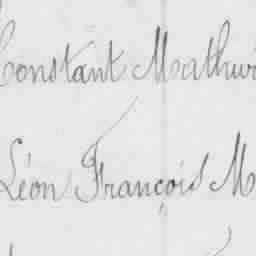 Constant Mathur
Léon François M